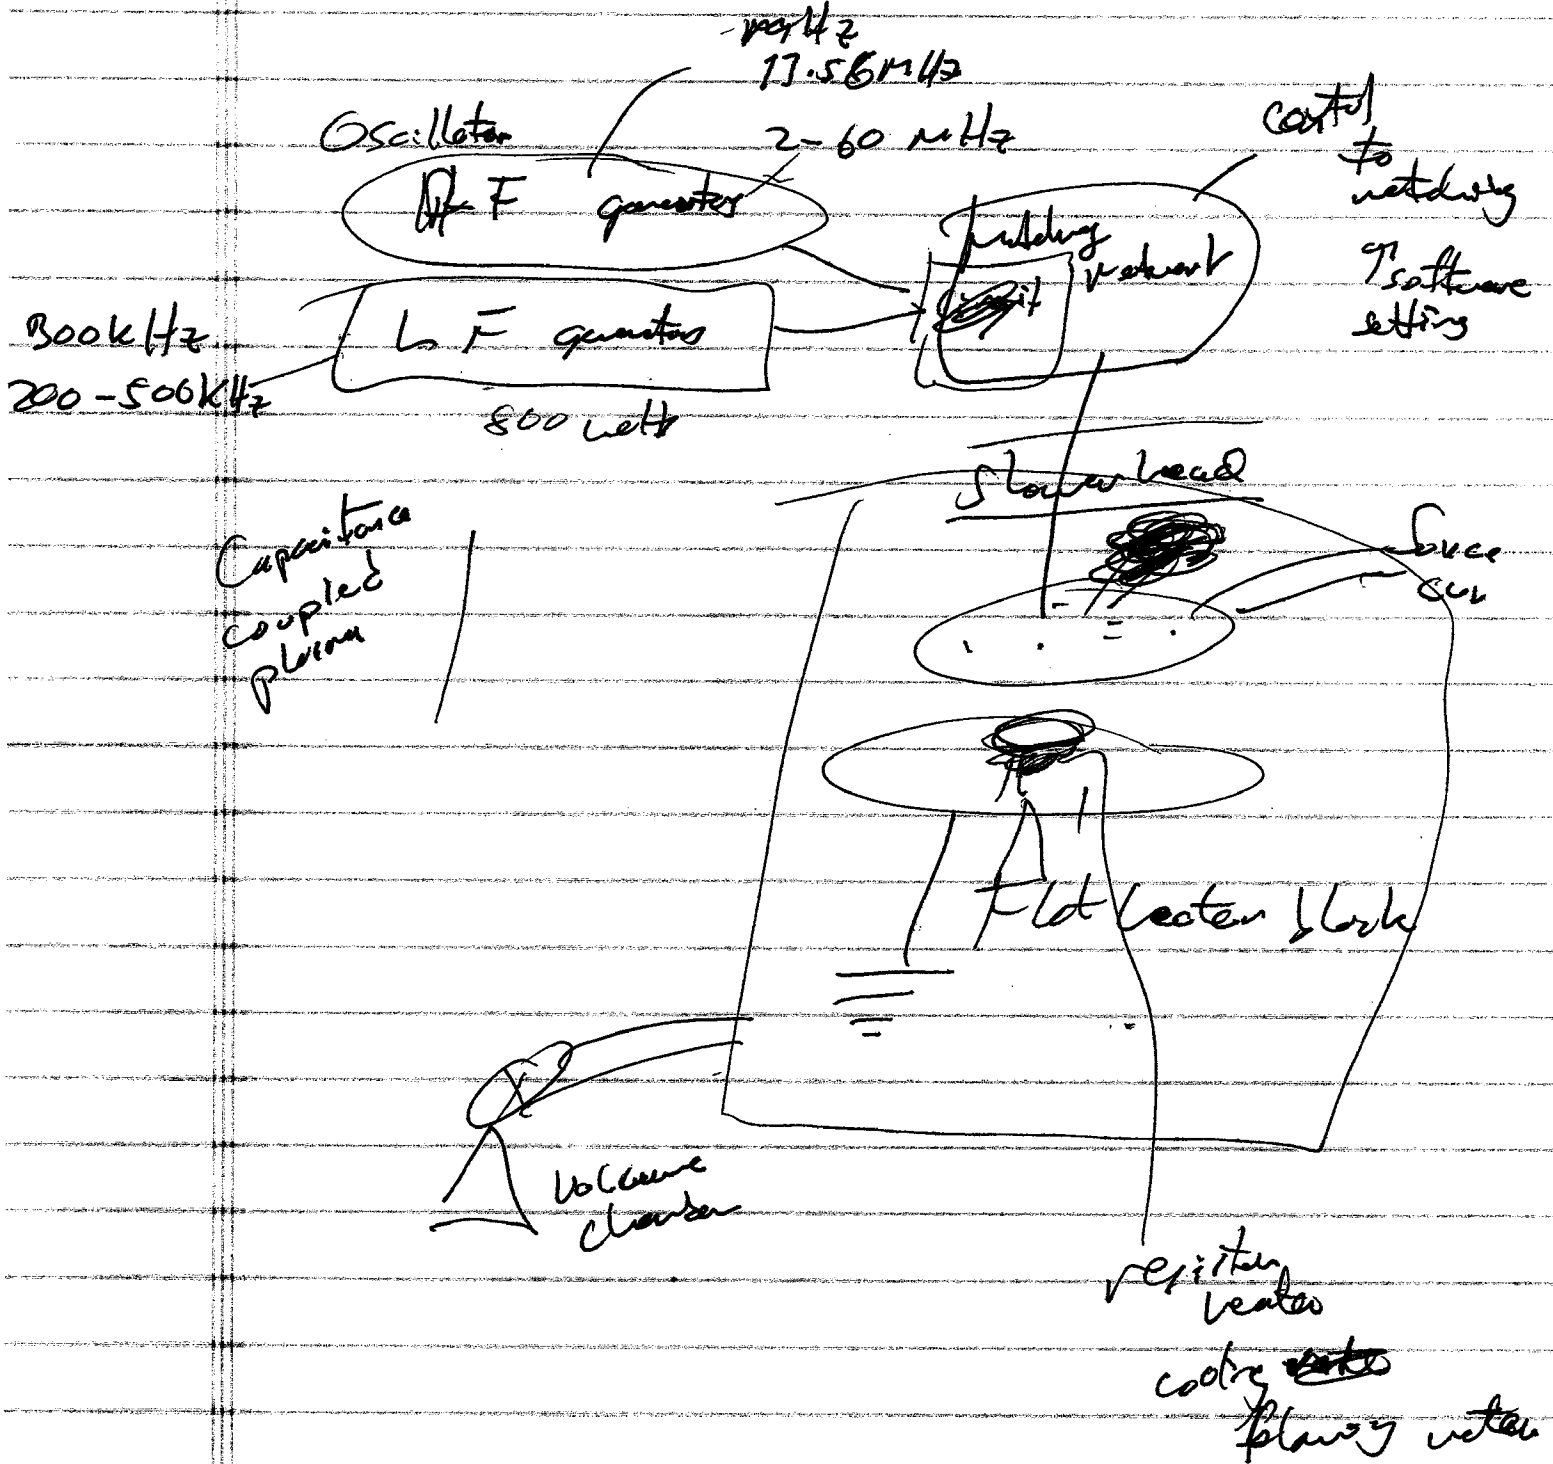 MHz
13.56 MHz
Oscillator
2-60 MHz
RF generator
control
to
matching
↑ software
setting
matching
network
300 kHz
200-500 kHz
LF generator
800 watts
showerhead
Capacitance
coupled
plasma
Source
Flat heater block
chamber
resistor
heater
cooling
flowing water